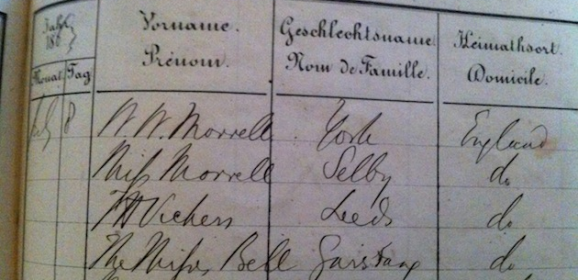 Jahr Vorname. Geschlechtsname Heimathsort.
186 Prénom. Nom de Famille. Domicile.
Monat. Tag
July 8 W. W. Morrell York England
Miss Morrell Selby do
Vickers Leeds do
The Misses Bell Garstang do